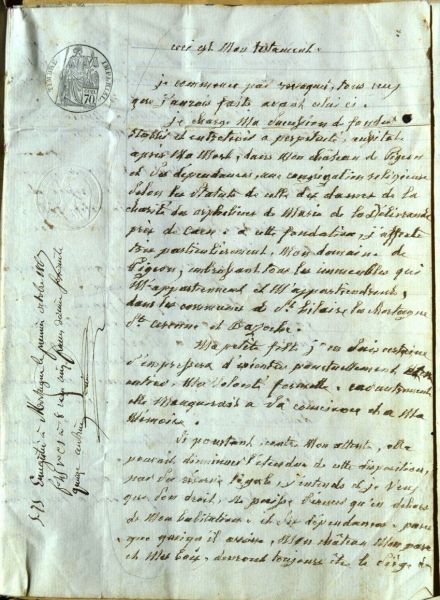 TIMBRE IMPERIAL
70
ceci est Mon testament.
je commence par revoquer, tous ceux
que j'aurois faits avant celui ci.
Je charge Ma succession de fonder
établir et entretenir a perpétuité, aussitot
après Ma Mort, dans Mon château de
et ses dépendances, une congrégation religieuse
selon les Statuts de celle des dames de la
charité des orphelines de Marie de la Délivrande
près de Caen. a cette fondation, j'affecte
très particulièrement, Mon domaine de
tous les immeubles qui
M'appartiennent et M'appartiendront,
dans les communes de St. hilaire les Mortagne
St. et Bazoche.
Ma petite fille, j'en suis certaine
s'empressera d'exécuter ponctuellement
Ma Volonté formelle.
elle Manquerait a Sa conscience et a Ma
Mémoire.
Si pourtant contre Mon attente, elle
pouvait diminuer l'étendue de cette disposition,
par j'entends et je veux
que Son droit, ne puisse s'exercer qu'en dehors
de Mon habitation, et ses dépendances, parce
que quoiqu'il arrive, Mon château Mon parc
et Mes bois, devront toujours être le Siège
Enregistré à Mortagne le premier octobre 1867
reçu cinq francs décime
quinze centimes